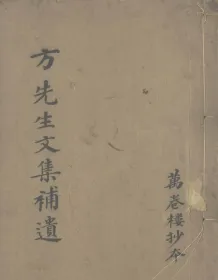 方先生文集補遺
萬卷樓抄本